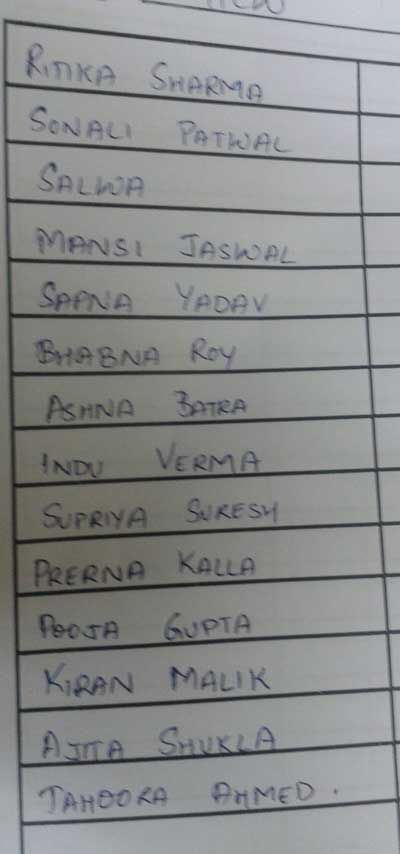 RITIKA SHARMA
SONALI PATWAL
SALWA
MANSI JASWAL
SAPNA YADAV
BHABNA ROY
ASHNA BATRA
INDU VERMA
SUPRIYA SURESH
PRERNA KALLA
POOJA GUPTA
KIRAN MALIK
AJITA SHUKLA
TAHOORA AHMED.